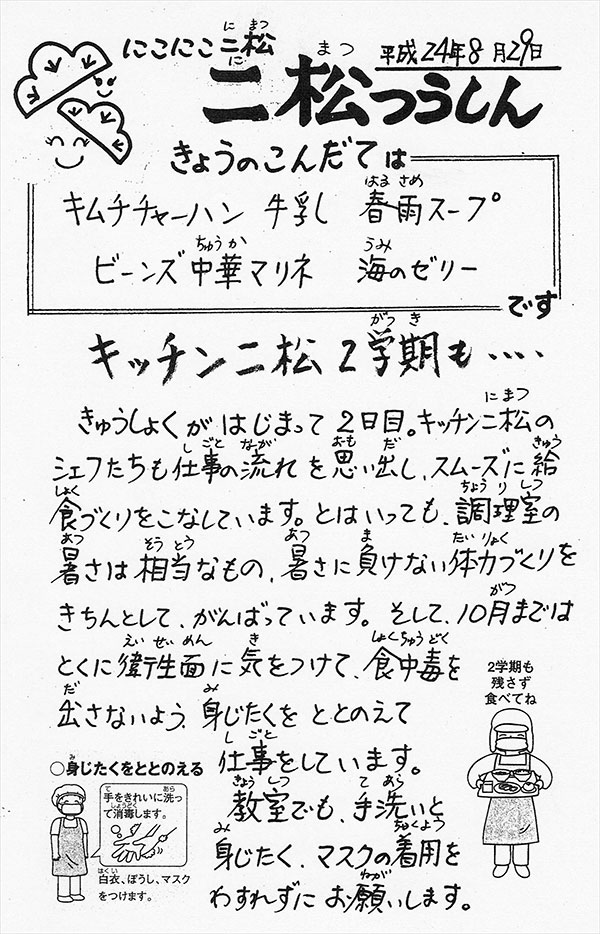 にこにこ二松
平成24年8月29日
二松つうしん
きょうのこんだては
キムチチャーハン 牛乳 春雨スープ
ビーンズ中華マリネ 海のゼリー
です
キッチン二松2学期も‥‥
きゅうしょくがはじまって2日目。キッチン二松の
シェフたちも仕事の流れを思い出し、スムーズに給
食づくりをこなしています。とはいっても、調理室の
暑さは相当なもの、暑さに負けない体力づくりを
きちんとして、がんばっています。そして、10月までは
とくに衛生面に気をつけて、食中毒を
出さないよう、身じたくをととのえて
仕事をしています。
教室でも、手洗いと
身じたく、マスクの着用を
わすれずにお願いします。
2学期も
残さず
食べてね
○身じたくをととのえる
手をきれいに洗っ
て消毒します。
白衣、ぼうし、マスク
をつけます。